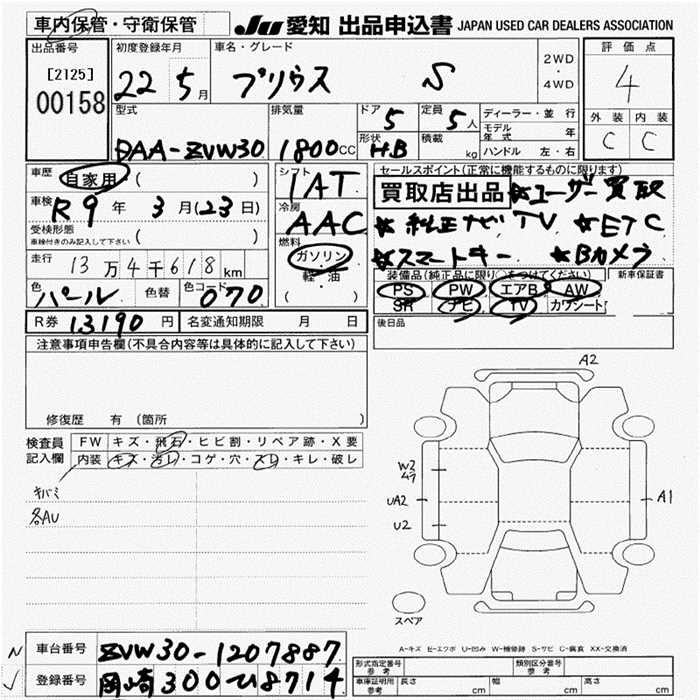 車内保管・守衛保管 JU 愛知 出品申込書 JAPAN USED CAR DEALERS ASSOCIATION
出品番号 初度登録年月 車名・グレード 評価点
[2125] 22 5月 プリウス S 2WD・4WD 4
00158
型式 排気量 ドア 5 定員 5人 ディーラー・並行 外装 内装
モデル年式 年 C C
DAA-ZVW30 1800CC 形状 HB 積載 kg ハンドル 左・右
車歴 自家用 ( ) シフト セールスポイント(正常に機能するものに限ります)
1AT 買取店出品 ★ユーザー買取
車検 R9年 3月(23日) 冷房 AAC ★純正ナビ TV ★ETC
受検形態 ( )
車検付きのみ記入して下さい 燃料 ★スマートキー ★Bカメラ
走行 13万4千618km ガソリン
軽・油 装備品(純正品に限り○をつけてください) 新車保証書
色 パール 色替 色コード 070 ( ) PS PW エアB AW
SR ナビ TV カワシート
R券 13190円 名変通知期限 月 日 後日品
注意事項申告欄(不具合内容等は具体的に記入して下さい)
A2
修復歴 有 (箇所 )
検査員 FW キズ・飛石・ヒビ割・リペア跡・X要
記入欄 内装 キズ・汚レ・コゲ・穴・スレ・キレ・破レ
W2
キバミ UA2 A1
各AU U2
スペア
A-キズ E-エクボ U-凹み W-補修跡 S-サビ C-腐食 XX-交換済
車台番号 ZVW30-1207887 形式指定番号 参考 類別区分番号 参考
登録番号 岡崎300ひ8714 車庫証明用 参考 長さ cm 幅 cm 高さ cm